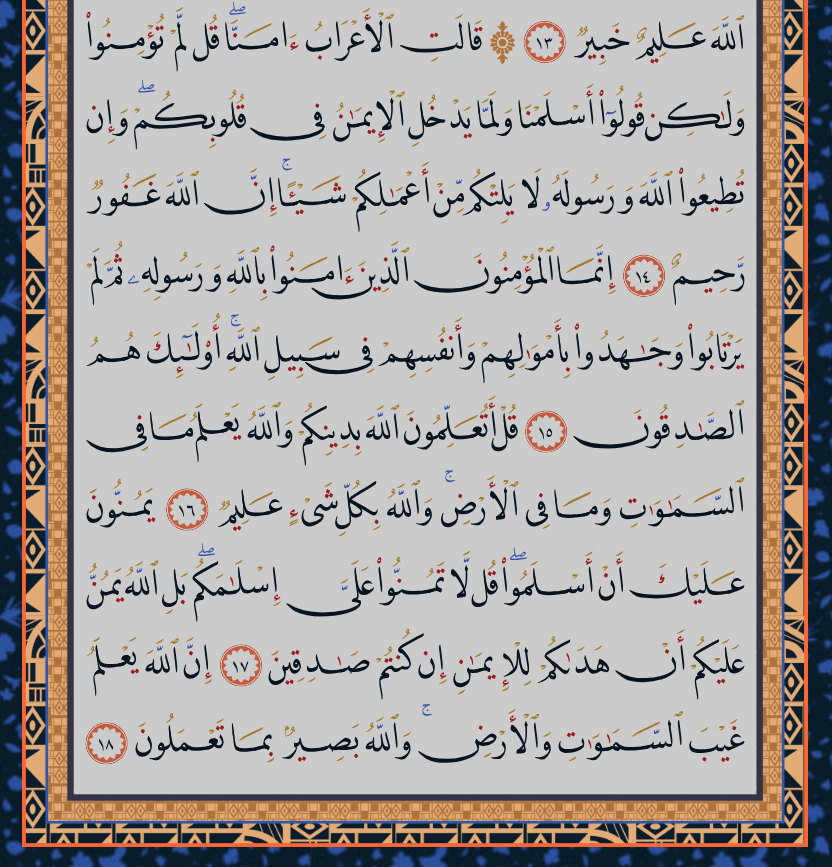 ٱللَّهَ عَلِيمٌ خَبِيرٌ ١٣ ۞ قَالَتِ ٱلْأَعْرَابُ ءَامَنَّاۖ قُل لَّمْ تُؤْمِنُوا۟
وَلَٰكِن قُولُوٓا۟ أَسْلَمْنَا وَلَمَّا يَدْخُلِ ٱلْإِيمَٰنُ فِى قُلُوبِكُمْۖ وَإِن
تُطِيعُوا۟ ٱللَّهَ وَرَسُولَهُۥ لَا يَلِتْكُم مِّنْ أَعْمَٰلِكُمْ شَيْـًٔاۚ إِنَّ ٱللَّهَ غَفُورٌ
رَّحِيمٌ ١٤ إِنَّمَا ٱلْمُؤْمِنُونَ ٱلَّذِينَ ءَامَنُوا۟ بِٱللَّهِ وَرَسُولِهِۦ ثُمَّ لَمْ
يَرْتَابُوا۟ وَجَٰهَدُوا۟ بِأَمْوَٰلِهِمْ وَأَنفُسِهِمْ فِى سَبِيلِ ٱللَّهِۚ أُو۟لَٰٓئِكَ هُمُ
ٱلصَّٰدِقُونَ ١٥ قُلْ أَتُعَلِّمُونَ ٱللَّهَ بِدِينِكُمْ وَٱللَّهُ يَعْلَمُ مَا فِى
ٱلسَّمَٰوَٰتِ وَمَا فِى ٱلْأَرْضِۚ وَٱللَّهُ بِكُلِّ شَىْءٍ عَلِيمٌ ١٦ يَمُنُّونَ
عَلَيْكَ أَنْ أَسْلَمُوا۟ۖ قُل لَّا تَمُنُّوا۟ عَلَىَّ إِسْلَٰمَكُمۖ بَلِ ٱللَّهُ يَمُنُّ
عَلَيْكُمْ أَنْ هَدَىٰكُمْ لِلْإِيمَٰنِ إِن كُنتُمْ صَٰدِقِينَ ١٧ إِنَّ ٱللَّهَ يَعْلَمُ
غَيْبَ ٱلسَّمَٰوَٰتِ وَٱلْأَرْضِۚ وَٱللَّهُ بَصِيرٌۢ بِمَا تَعْمَلُونَ ١٨